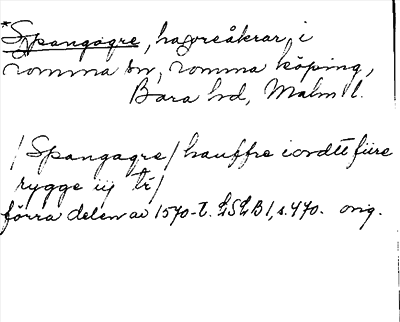 *Spangagre, havreåkrar, i
Lomma sn, Lomma köping,
Bara hd, Malm l.
/Spangagre/ hauffre iordtt fiire
rygge iij tr/
förra delen av 1570-t. LSLB 1, s. 470. orig.